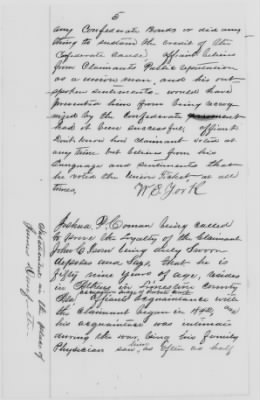 5
any Confederate Bonds or did any
thing to sustain the credit of the
Confederate cause, affiant believes
from Claimants Public reputation
as a union man, and his out
spoken sentiments - would have
prevented him from being recog
nized by the Confederate
had it been successful, affiant
dont know how claimant voted at
any time but believes from his
Language and sentiments that
he voted the Union Ticket at all
times,
W. E. York
Joshua P. Coman being called
to prove the Loyalty of the Claimant
John C. being duly sworn
deposes and says, that he is
fifty nine years of age, resides
in Athens in Limestone county
Ala affiants acquaintance with
the claimant began in 1842, and
his acquaintance was intimate
during the war, being his family
Physician saw him as often as half
in the place of
James